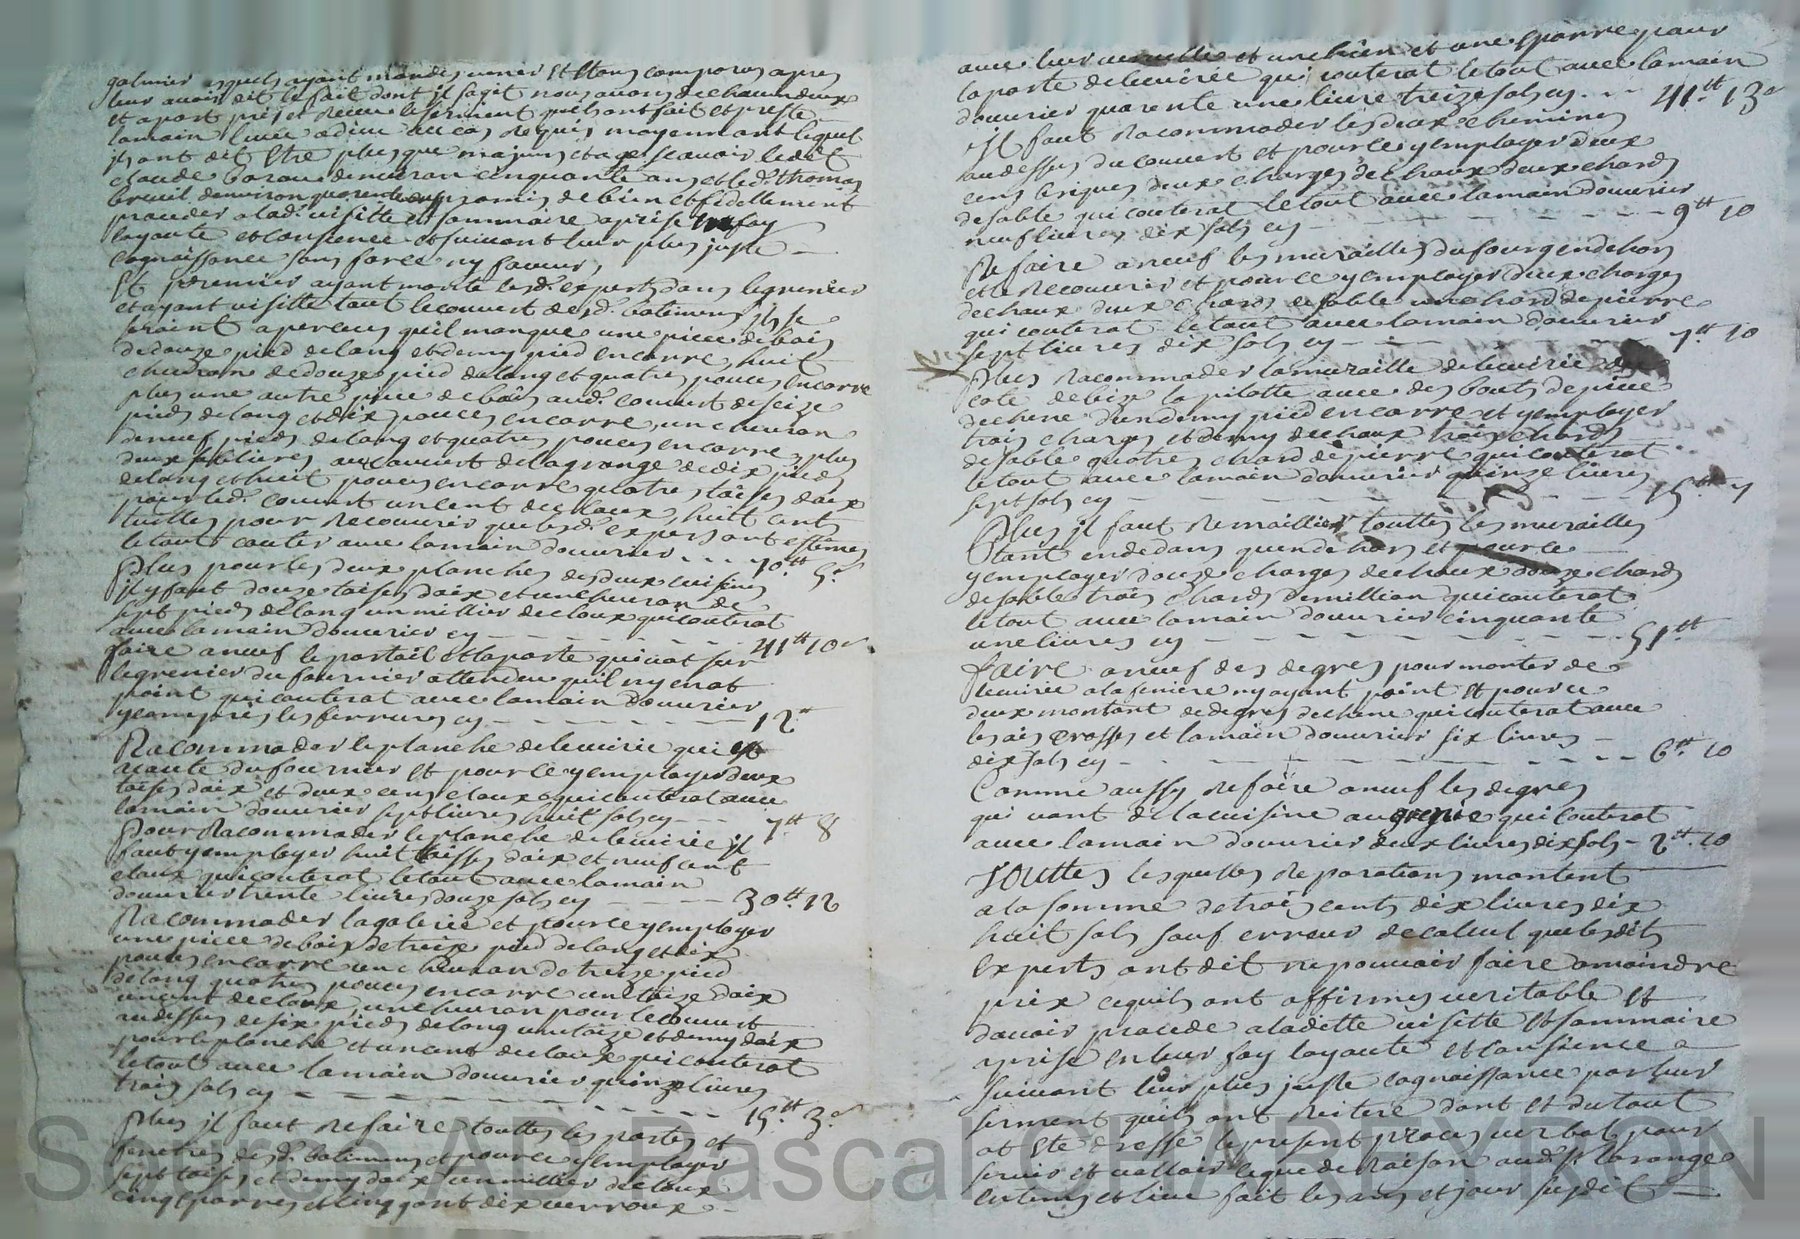 galmier lesquels ayant mandes venir Et Etans comparus apres
leur avoir dit le fait dont il sagit nous avons de chacun deux
et apart pris et receu le serment quils ont fait et preste
lamain levee a dieu au cas requis moyennant lequel
ils ont dit Etre plus que majeurs et ages scavoir ledit
claude denviron cinquante ans et led. thomas
breuil denviron quarente ans promis de bien et fidellement
proceder a lad. visitte et sommaire aprise en foy
loyaute et consience et suivant leur plus juste
cognaissance sans force ny faveur,
Et premier ayant monte lesd. experts dans le grenier
et ayant visitte tout le couvert desd. batimens ils se
seroint apercus quil manque une piece de bois
de douze pied de long et demy pied en carre, huit
chevron de douze pied de long et quatre pouces en carre
plus une autre piece de bois aud. couvert de seize
pieds de long et dix pouces en carre, un chevron
de neuf pieds de long et quatre pouces en carre, plus
deux sablieres au couvert de la grange de dix pieds
de long et huit pouces en carre quatre toises daix
pour led. couvert un cent de cloux, huit cents
tuilles pour recouvrir que lesd. experts ont estimes
le tout couter avec lamain douvrier - - - 70 ₶ 5 s
Plus pour les deux planches des deux cuisines
il y faut douze toises daix et un chevron de
sept pieds de long un millier de cloux qui couterat
avec lamain douvrier cy - - - - - 41 ₶ 10 s
faire a neuf le portail et la porte qui vat sur
le grenier du fournier attendu quil ny en at
point qui couterat avec lamain douvrier
y compris les ferrures cy - - - - - 12 ₶
Racommoder le planche de lecuirie qui est
acoute du fournier et pour ce y employer deux
toises daix et deux cens cloux qui couterat avec
lamain douvrier sept livres huit sols cy - - - 7 ₶ 8
Pour Racommoder le planche de lecuirie il
faut y employer huit toisses daix et neuf cent
cloux qui couterat le tout avec lamain
douvrier trente livres douze sols cy - - - - - 30 ₶ 12
Racommoder la galerie et pour ce y employer
une piece de bois de treize pied de long et dix
pouces en carre un chevron de treize pied
de long quatre pouces en carre une toize daix
un cent de cloux, un chevron pour le couvert
audessus de six pieds de long une toize et demy daix
pour le planche et un cent de cloux qui couterat
le tout avec lamain douvrier quinze livres
trois sols cy - - - - - - - - 15 ₶ 3 s
Plus il faut refaire touttes les portes et
fenetres desd. batimens et pour ce y employer
sept toises et demy daix un millier de cloux
cinq sparres et cinq gont dix verroux -
avec leur et une bien et une sparre pour
la porte de lecuirie qui couterat le tout avec lamain
douvrier quarente une livre treize sols cy - - - 41 ₶ 13 s
Il faut Racommoder les deux chemines
au dessus du couvert et pour ce y employer deux
cens briques deux charges de chaux deux chards
de sable qui couterat le tout avec lamain douvrier
neuf livres dix sols cy - - - - - - - 9 ₶ 10
Refaire a neuf les murailles du four en dehors
et le recouvrir et pour ce y employer deux charges
de chaux deux chards de sable un chard de pierre
qui couterat le tout avec lamain douvrier
sept livres dix sols cy - - - - - - - 7 ₶ 10
Plus Racommoder la muraille de lecuirie du
cote de bize la pilotte avec des bouts de piece
de chene dun demy pied en carre et y employer
trois charges et demy de chaux trois chards
de sable quatre chard de pierre qui couterat
le tout avec lamain douvrier quinze livres
sept sols cy - - - - - - - - 15 ₶ 7
Plus il faut Remaillier touttes les murailles
tant en dedans quen dehors et pour ce
y employer douze charges de chaux douze chards
de sable trois chards de million qui couterat
le tout avec lamain douvrier cinquante
une livres cy - - - - - - - - 51 ₶
faire a neuf des degres pour monter de
lecuirie a la feniere ny ayant point Et pour ce
deux montant de degres de chene qui couterat avec
les ais et lamain douvrier six livres
dix sols cy - - - - - - - - 6 ₶ 10
Comme aussy Refaire a neuf les degres
qui vont de la cuisine au grenie qui couterat
avec lamain douvrier deux livres dix sols - 2 ₶ 10
Touttes lesquelles Reparations montent
a la somme de trois cents dix livres dix
huit sols sauf erreur de calcul que lesdits
experts ont dit ne pouvoir faire a moindre
prix ce quils ont affirmes veritable et
davoir procede a ladette visitte et sommaire
aprise en leur foy loyaute et consience
suivant leur plus juste cognaissance par leur
serment quils ont Reitere dont et du tout
at Ete dresse le present proces verbal pour
servir et valloir ce que de Raison aud. st. la range
en temps et lieu fait les ans et jour susdit
Source AD Pascal CHAREYRON